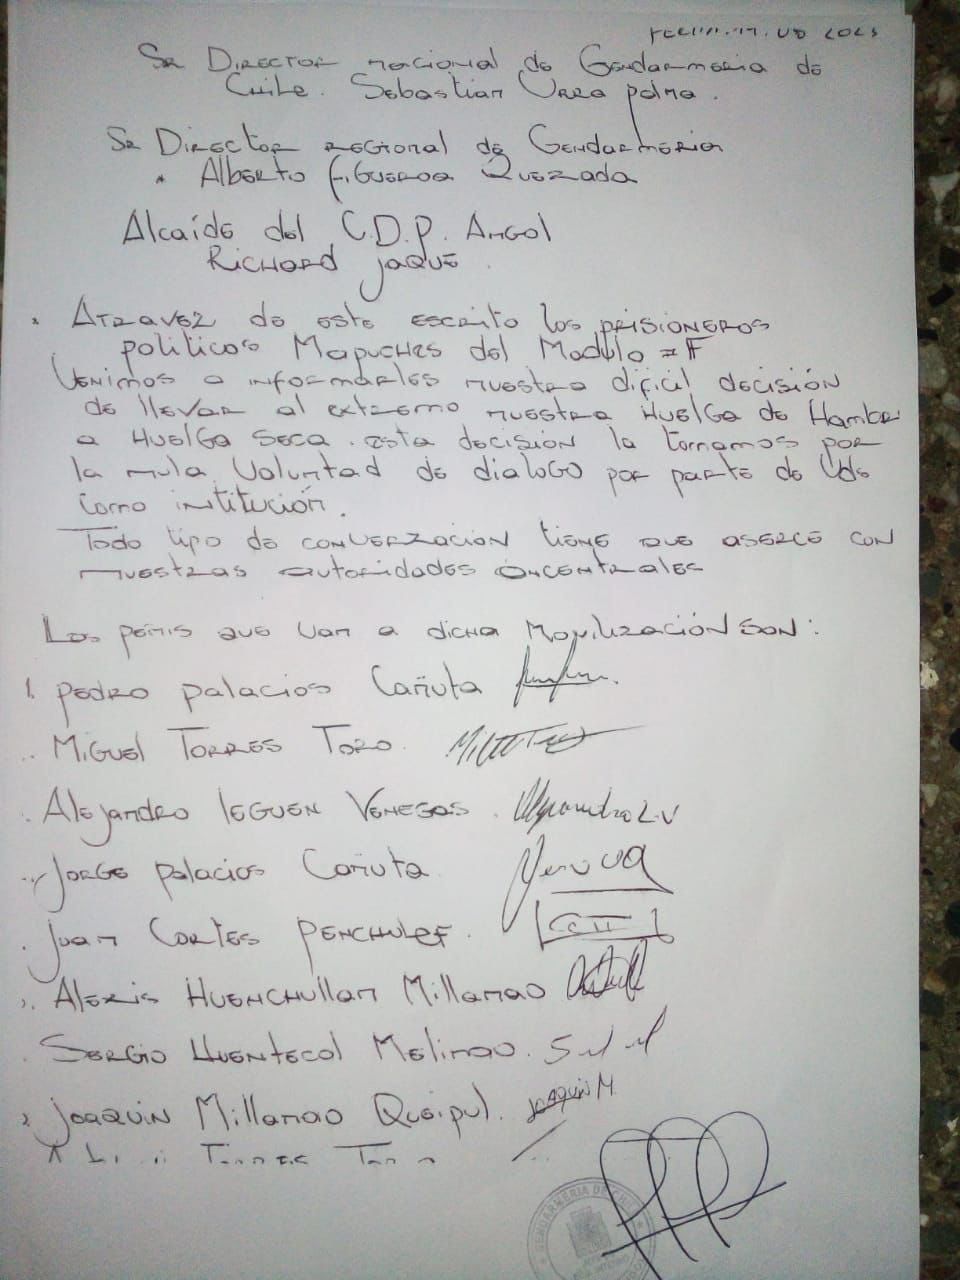 2023
Sr Director nacional de Gendarmeria de
Chile. Sebastian Urra palma.
Sr Director regional de Gendarmeria
Alberto Figueroa Quezada
Alcaíde del C.D.P. Angol
Richard jaque.
Atravez de este escrito los prisioneros
politicos Mapuches del Modulo = F
Venimos a informarles nuestra dificil decisión
de llevar al extremo nuestra Huelga de Hambr
a Huelga seca. esta decisión la tomamos por
la nula voluntad de dialogo por parte de Uds
como institución.
Todo tipo de converzación tiene que aserce con
nuestras autoridades
Los peñis que van a dicha Movilización son:
1. pedro palacios Cañuta
Miguel Torres Toro.
Alejandro leguen Venegas. Alejandro L.V
Jorge palacios Cañuta
Juan Cortes Penchulef.
Alexis Huenchullan Millanao
Sergio Huentecol Melinao.
Joaquin Millanao Queipul. Joaquin M.
Torres Toro
GENDARMERIA DE CHILE